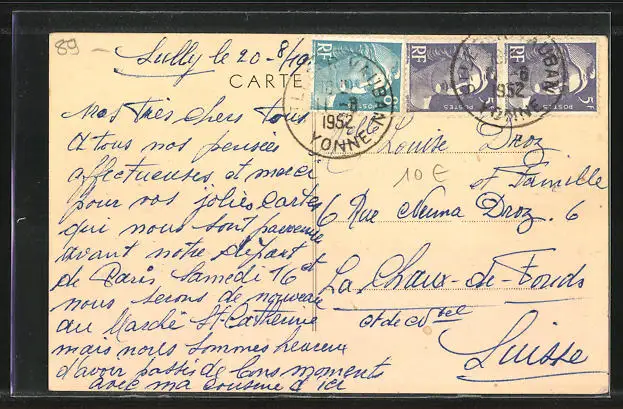 89
Sully le 20-8/19
CARTE
RF
8F
RF
POSTES
5F
RF
POSTES
5F
VAUBAN
-8
1952
YONNE
VAUBAN
-8
1952
YONNE
Mes Très chers tous
A tous nos pensées
affectueuses et merci
pour vos jolies cartes
qui nous sont parvenue
avant notre départ
de Paris Samedi 16 et
nous serons de nouveau
au Marché Ste Catherine
mais nous sommes heureux
d'avoir passés de bons moments
avec ma cousine d'ici
Louise Droz
et Famille
10 €
6 Rue Numa Droz. 6
La Chaux-de-Fonds
Suisse